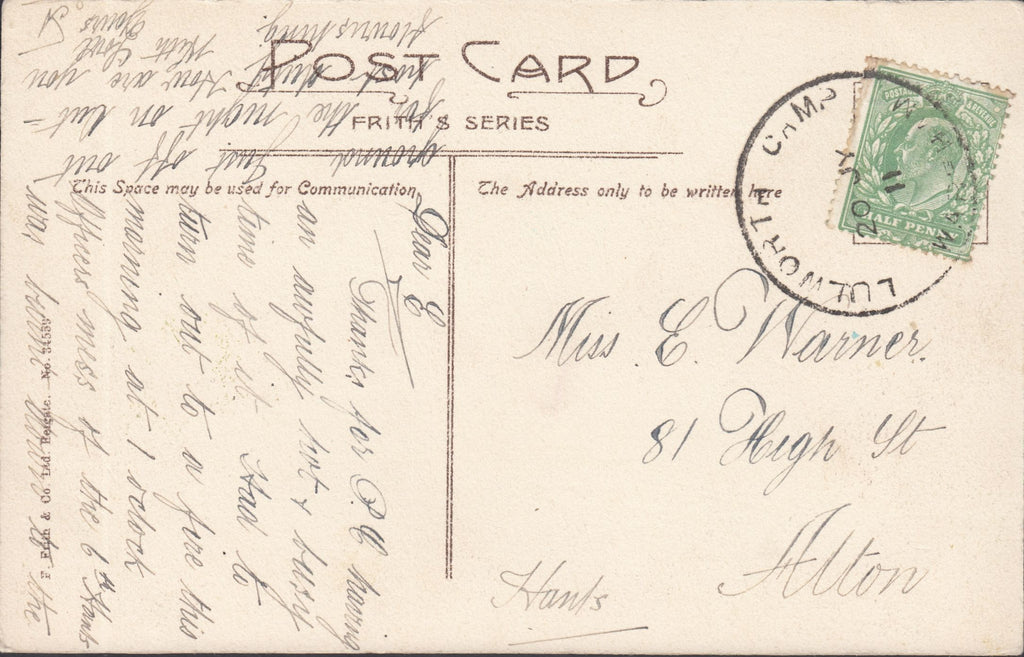 POST CARD
FRITH'S SERIES
This Space may be used for Communication
The Address only to be written here
POSTAGE & REVENUE
HALF PENNY
LULWORTH CAMP
WAREHAM
20 JY
11
Miss E. Warner.
81 High St
Alton
Hants
Dear E
Thanks for P.C. having
an awfully hot & busy
time of it. Had to
turn out to a fire this
morning at 1 oclock
Officers mess of the 6th Hants
was burnt down to the
ground just off out
for the night on out-
post duty How are you
flourishing
With Love
Yours
F. Frith & Co. Ltd. Reigate. No. 54535